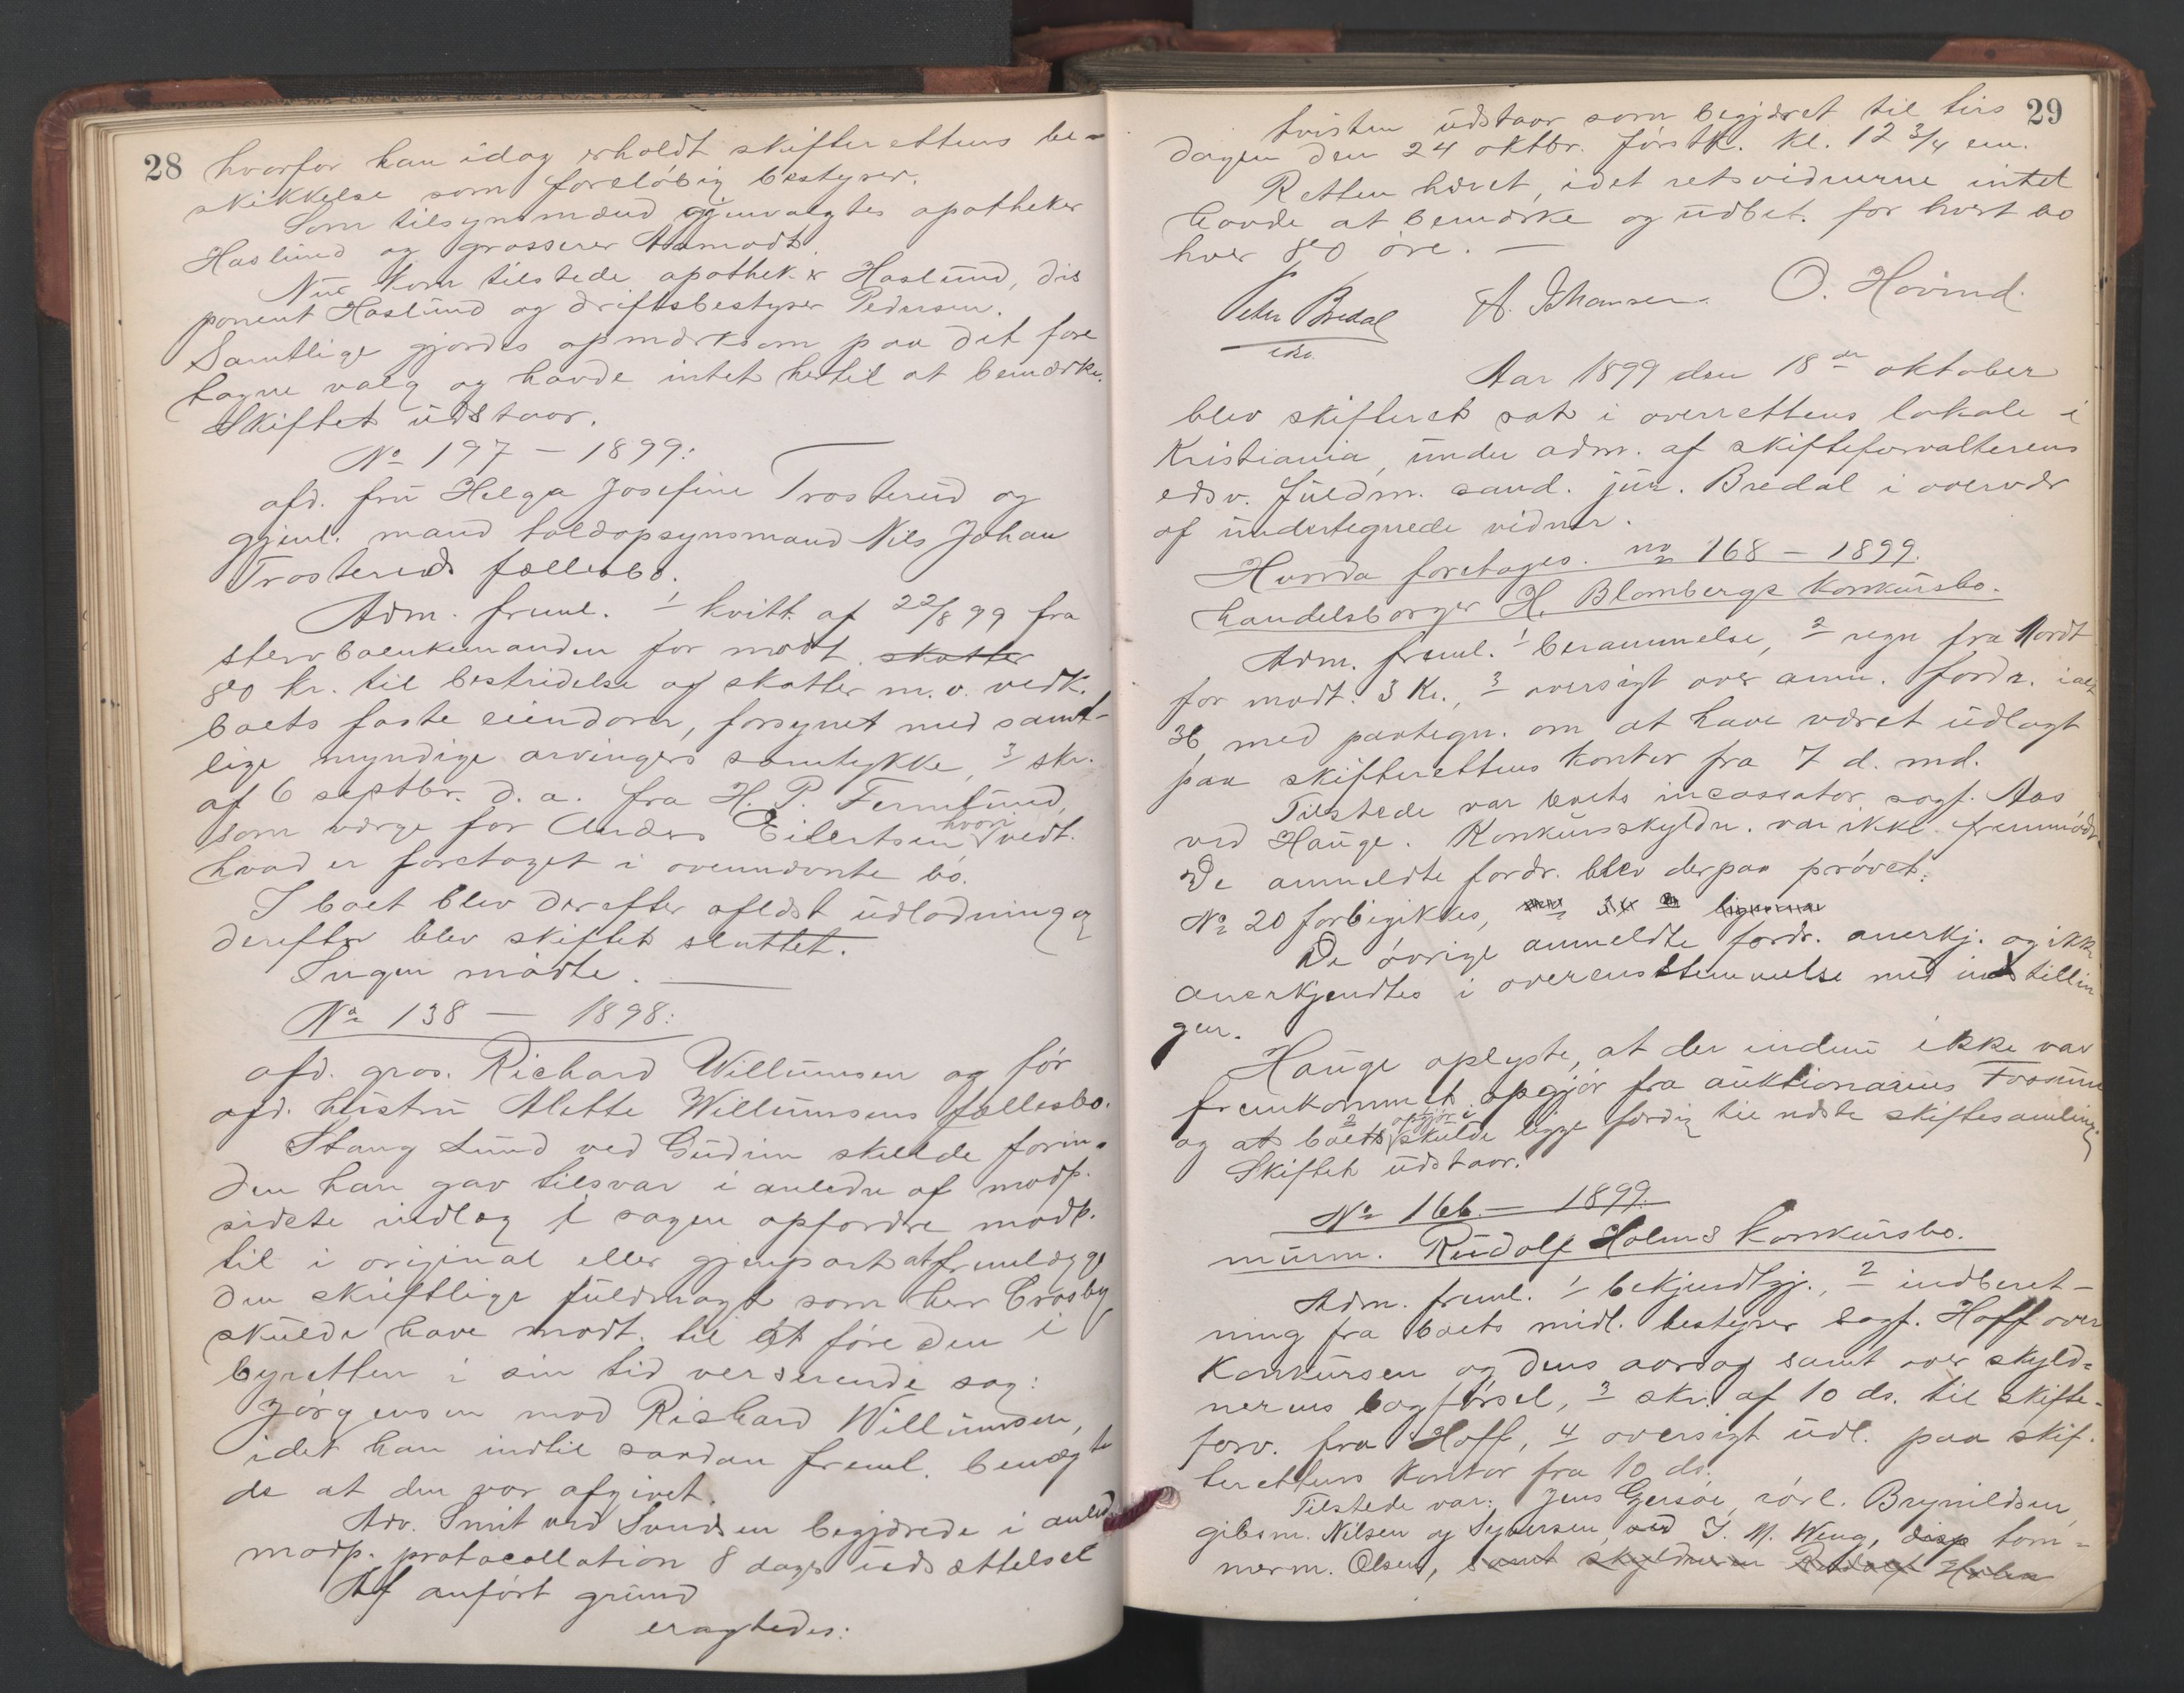 28
hvorfor han idag erholdt skifterettens be-
skikkelse som foreløbig bestyrer.
Som tilsynsmænd gjenvalgtes apotheker
Haslund og grosserer Aamodt.
Nu kom tilstede apotheker Haslund, dis
ponent Haslund og driftsbestyrer Pedersen.
Samtlige gjordes opmærksom paa det fore
tagne valg og havde intet hertil at bemærke.
Skiftet udstaar.
No 197 – 1899:
afd. fru Helga Josefine Trosterud og
gjenl. mand toldopsynsmand Nils Johan
Trosteruds fællesbo.
Adm. freml. 1 kvitt. af 22/8 99 fra
stervboenkemanden for modt. skatter
80 kr. til bestridelse af skatter m. v. vedk.
boets faste eiendom, forsynet med samt-
lige myndige arvingers samtykke, 3 skr.
af 6 septbr. d. a. fra H. P.
som værge for Anders Eilertsen hvori vedt.
hvad er foretaget i ovennævnte bo.
I boet blev derefter aflæst udlodning og
derefter blev skiftet sluttet.
Ingen mødte.
No 138 – 1898:
afd. gros. Richard Willumsen og før
afd. hustru Alette Willumsens fællesbo.
Stang Lund ved Gudim skulde forin-
den han gav tilsvar i anledn af modp.
sidste indlæg i sagen opfordre modp.
til i original eller gjenpart at fremlægge
den skriftlige fuldmagt som herr Crosby
skulde have modt. til at føre den i
byretten i sin tid verserende sag:
Jørgensen mod Richard Willumsen,
idet han indtil saadan freml. benægte
de at den var afgivet.
Adv. Smit ved Svendsen begjærede i anledn
modp. protocollation 8 dages udsættelse
Af anført grund
eragtedes:
29
tvisten udstaar som begjæret til tirs
dagen den 24 oktbr. førstk. kl. 12 3/4 em.
Retten hævet, idet retsvidnerne intet
havde at bemærke og udbet. for hvert bo
hver 80 øre. –
Peter Bredal A. Johansen. O. Hovind.
edsv.
Aar 1899 den 18de oktober
blev skifteret sat i overrettens lokale i
Kristiania, under adm. af skifteforvalterens
edsv. fuldm. cand. jur. Bredal i overvær
af undertegnede vidner.
Hvorda foretages. no 168 – 1899.
handelsborger H. Blombergs konkursbo.
Adm. freml. 1 berammelse, 2 regn fra Nordt
for modt. 3 Kr., 3 oversigt over anm. fordr. ialt
36, med paategn. om at have været udlagt
paa skifterettens kontor fra 7 d. md.
Tilstede var boets incassator sagf. Aas
ved Hauge. Konkursskyldn. var ikke fremmødt.
De anmeldte fordr. blev derpaa prøvet:
No 20 forbigikkes,
De øvrige anmeldte fordr. anerkj. og ikke
anerkjendtes i overensstemmelse med indstillin
gen.
Hauge oplyste, at der endnu ikke var
fremkommet opgjør fra auktionarius Fosum
og at boets 2 opgjør i skulde ligge færdig til næste skiftesamling.
Skiftet udstaar.
No 166. – 1899.
murm. Rudolf Holms konkursbo.
Adm. freml. 1 bekjendtgj., 2 indberet-
ning fra boets midl. bestyrer sagf. Hoff over
Konkursen og dens aarsag samt over skyld-
nerens bogførsel, 3 skr. af 10 ds. til skifte-
forv. fra Hoff, 4 oversigt udl. paa skif-
terettens kontor fra 10 ds.
Tilstede var: Jens Gersøe, rørl. Brynildsen,
gibsm. Nilsen og Syversen ved J. M. Weng, disp tøm-
merm. Olsen, samt skyldneren Rudolf Holm